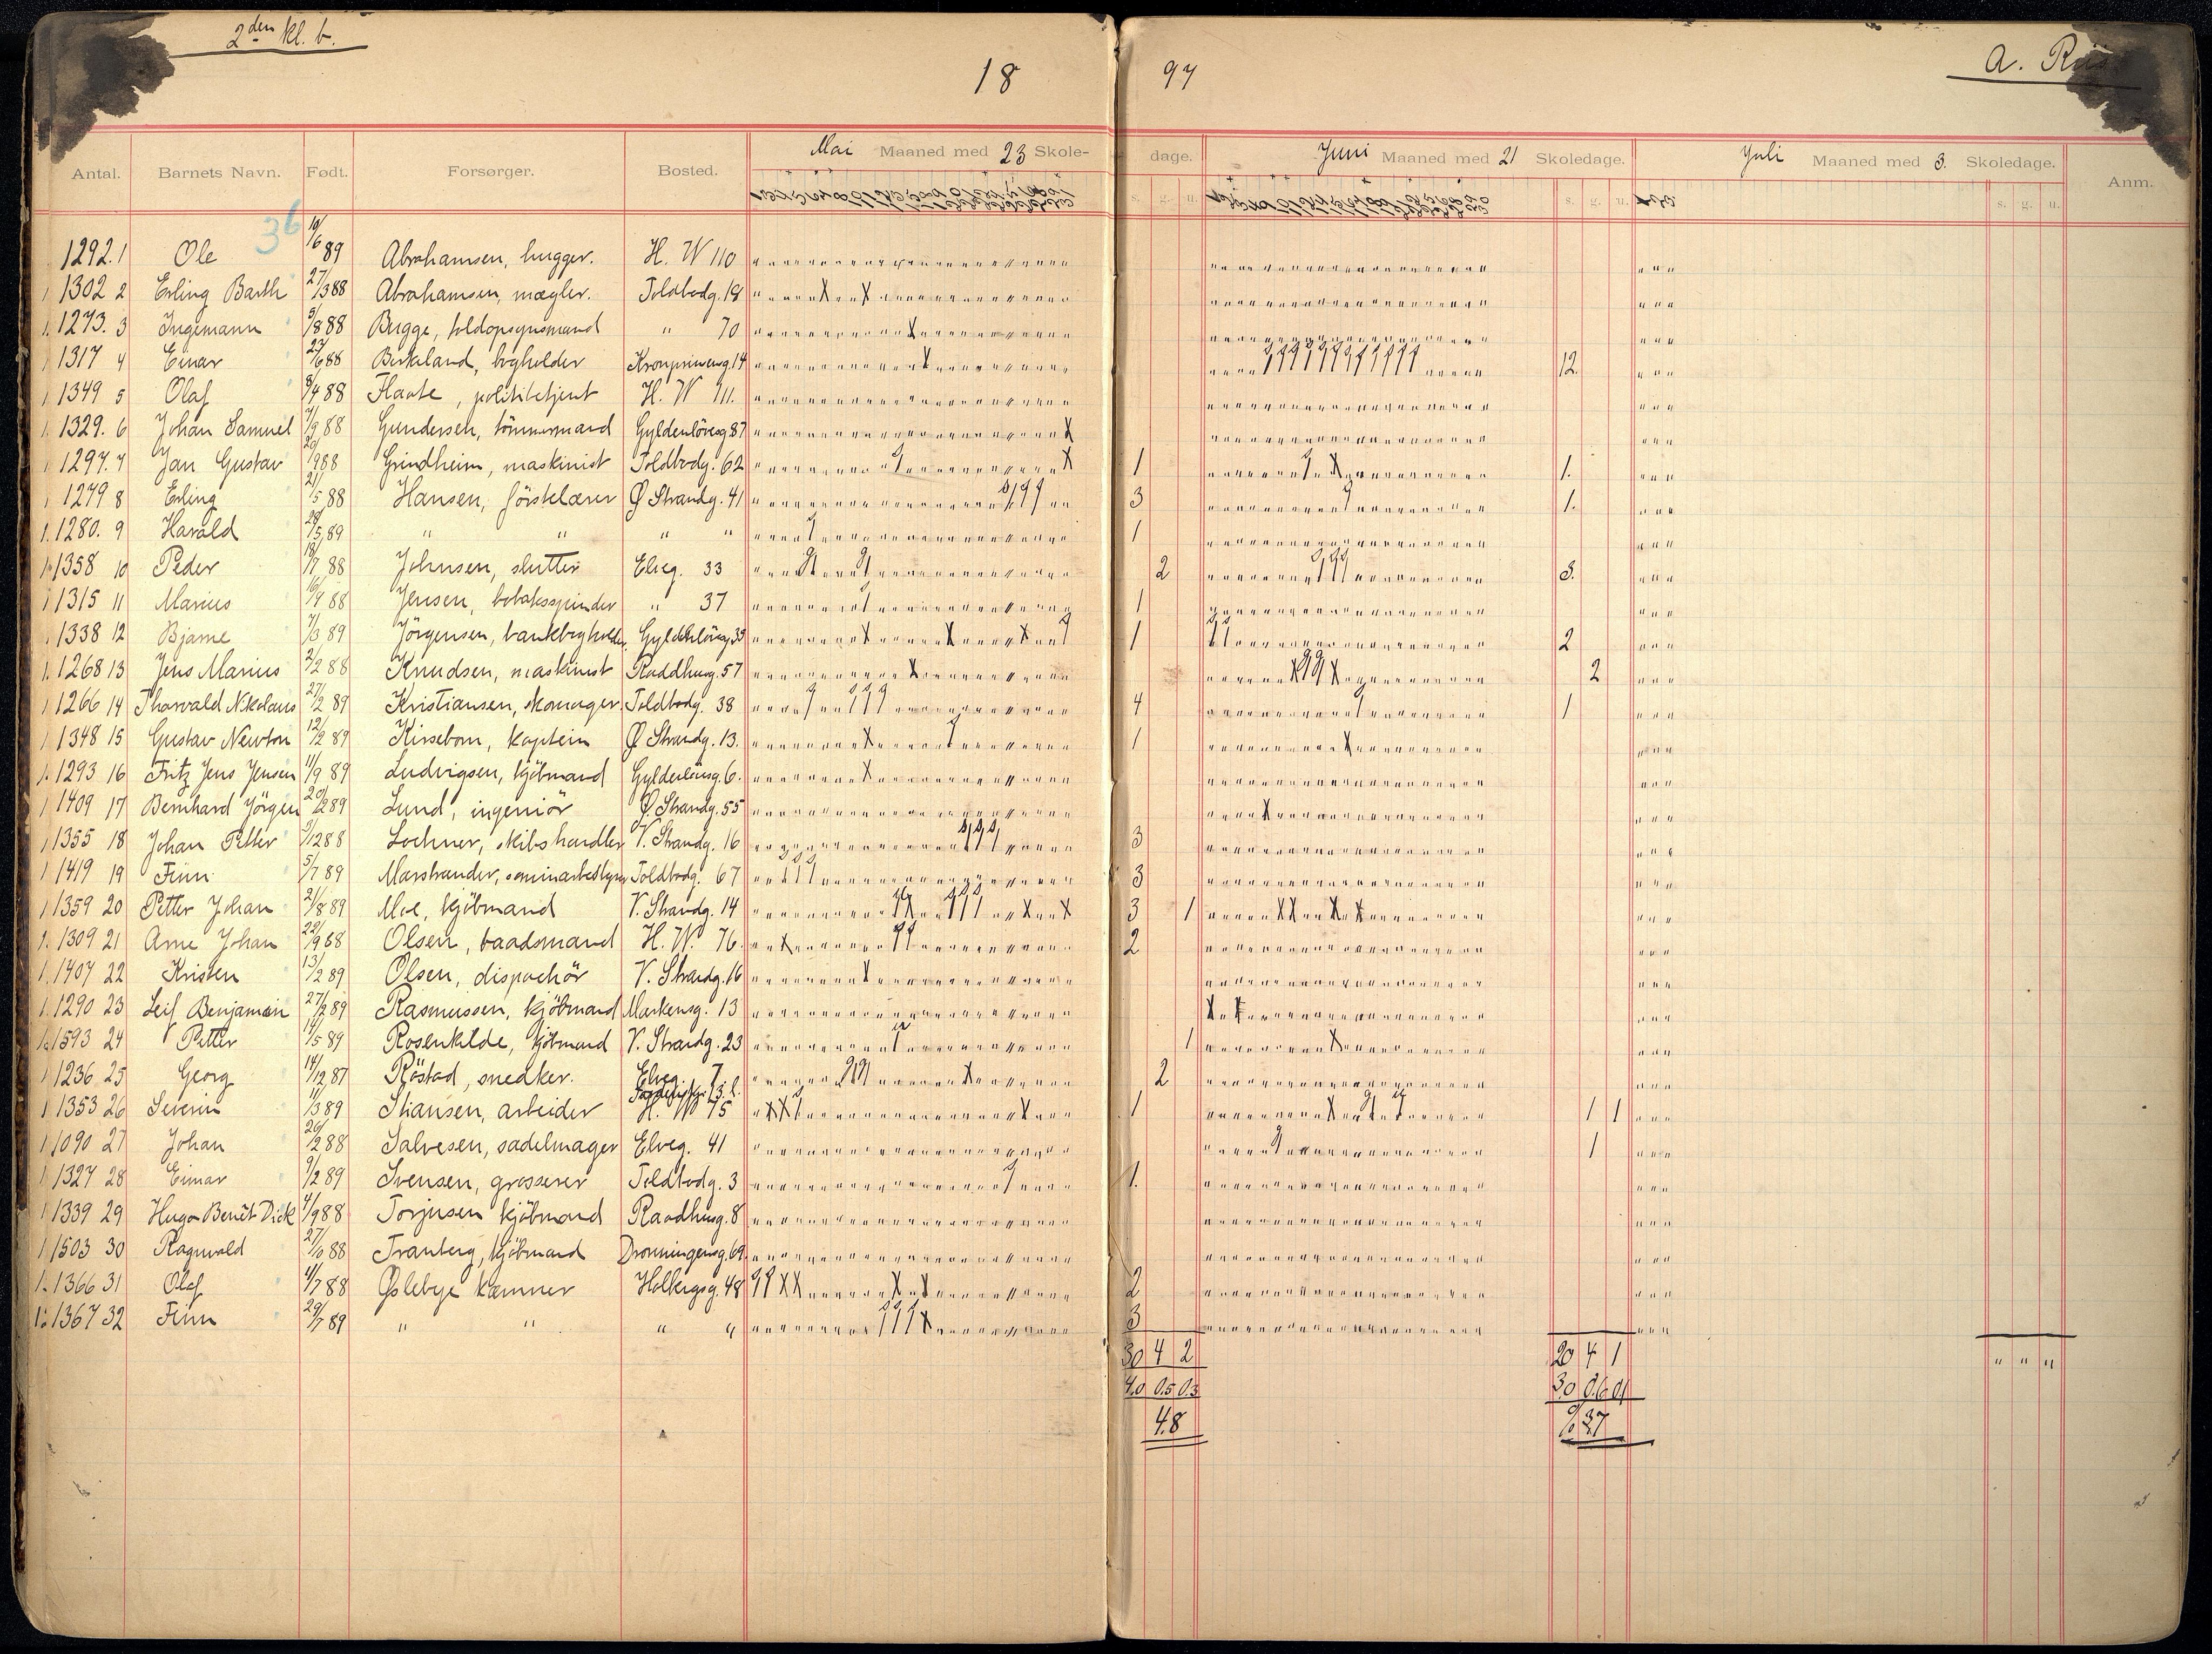 2den kl. b.
18 97
A. Riis
Antal. Barnets Navn. Født. Forsørger. Bosted. Mai Maaned med 23 Skole- dage. Juni Maaned med 21 Skoledage. Juli Maaned med 3. Skoledage. Anm.
s. g. u. s. g. u. s. g. u.
36
1292. 1 Ole 10/6 89 Abrahamsen, hugger. H. W 110
1 1302 2 Erling Barth 27/3 88 Abrahamsen, mægler. Toldbodg. 18
1. 1273. 3 Ingemann 5/8 88 Bugge, toldopsynsmand " 70
1 1317 4 Einar 23/6 88 Birkeland, bogholder Kronprinsensg. 14 12.
1 1349 5 Olaf 8/4 88 Flaate, politibetjent H. W 111.
1. 1329. 6 Johan Samuel 7/9 88 Gundersen, tömmermand Gyldenlövesg 87
1 1297. 7 Jan Gustav 20/9 88 Grindheim, maskinist Toldbodg. 62 1 1.
1 1279 8 Erling 21/5 88 Hansen, förstelærer Ø Strandg. 41 3 1.
1. 1280. 9 Harald 29/5 89 " " " " 1
1. 1358 10 Peder 18/7 88 Johnsen, slutter Elveg. 33 2 3.
1 1315 11 Marius 16/9 88 Jensen, tobaksspinder " 37 1
1 1338 12 Bjarne 7/3 89 Jörgensen, bankbogholder Gyldenlövesg 39 1 2
1. 1268 13 Jens Marius 2/2 88 Knudsen, maskinist Raadhusg. 57 2
1 1266 14 Thorvald Nikolaus 27/2 89 Kristiansen, skomager. Toldbodg. 38 4 1
1 1348 15 Gustav Newton 12/2 89 Kirsebom, kaptein Ø Strandg. 13. 1
1. 1293 16 Fritz Jens Jensen 11/9 89 Ludvigsen, kjöbmand Gyldenlövesg 6.
1 1409 17 Bernhard Jörgen 20/2 89 Lund, ingeniör Ø. Strandg. 55
1 1355 18 Johan Petter 3/12 88 Lochner, skibshandler V. Strandg. 16 3
1 1419 19 Finn 5/7 89 Marstrander, seminarbestyrer Toldbodg. 67 3
1 1359 20 Petter Johan 21/8 89 Moe, kjöbmand V. Strandg. 14 3 1
1. 1309 21 Arne Johan 22/9 88 Olsen, baadsmand H. W. 76. 2
1. 1407 22 Kristen 13/2 89 Olsen, dispachör V. Strandg. 16
1. 1290 23 Leif Benjamin 27/2 89 Rasmussen, kjöbmand Markensg. 13
1. 1593 24 Petter 14/5 89 Rosenkilde, kjöbmand V. Strandg. 23 1
1 1236 25 Georg 14/12 87 Röstad, snedker. Elveg. 7 2
1 1353 26 Severin 11/3 89 Stiansen, arbeider H. W 75 1 1 1
1 1090 27 Johan 26/2 88 Salvesen, sadelmager Elveg. 41 1
1 1327 28 Einar 9/2 89 Svensen, grosserer Toldbodg. 3 1.
1 1339 29 Hugo Benét Dick 4/9 88 Torjusen kjöbmand Raadhusg. 8
1 1503 30 Ragnvald 27/6 88 Tranberg, kjöbmand Dronningensg. 69.
1. 1366 31 Olaf 4/7 88 Øslebye kæmner Holbergsg. 48 2
1. 1367 32 Finn 29/7 89 " " " " 3
30 4 2 20 4 1 " " "
4.0 0.5 0.3 3.0 0.6 0.1
4.8 % 3.7